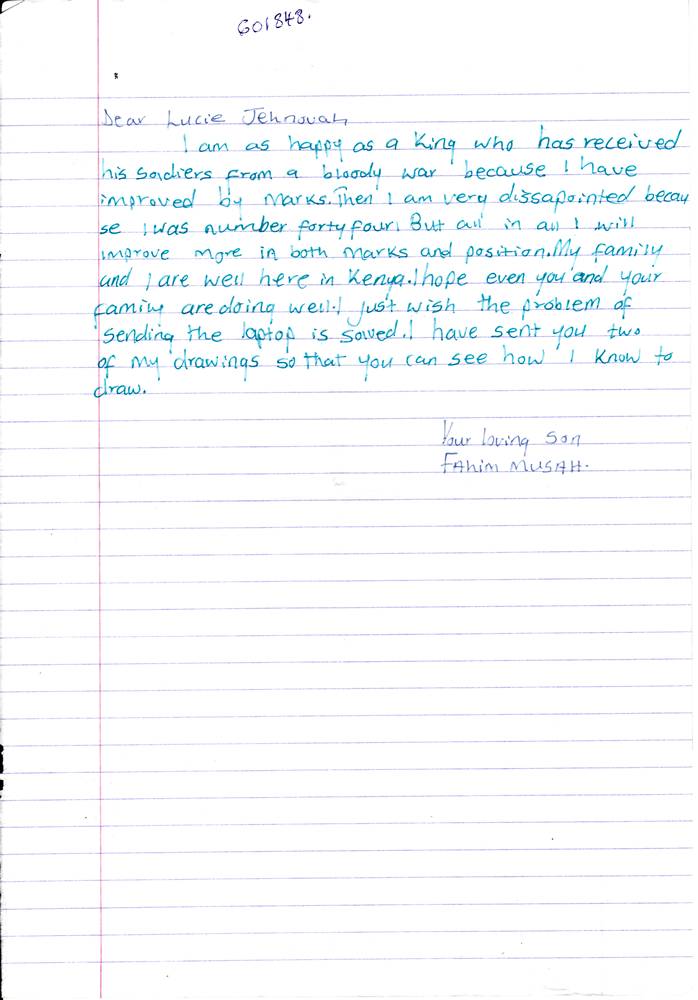 G01848.
Dear Lucie Jehnovah
I am as happy as a King who has received
his soldiers from a bloody war because I have
improved by marks. Then I am very dissapointed becau
se I was number forty four. But all in all I will
improve more in both marks and position. My family
and I are well here in Kenya. I hope even you and your
family are doing well. I just wish the problem of
sending the laptop is solved. I have sent you two
of my drawings so that you can see how I know to
draw.
Your loving son
FAHIM MUSAH.